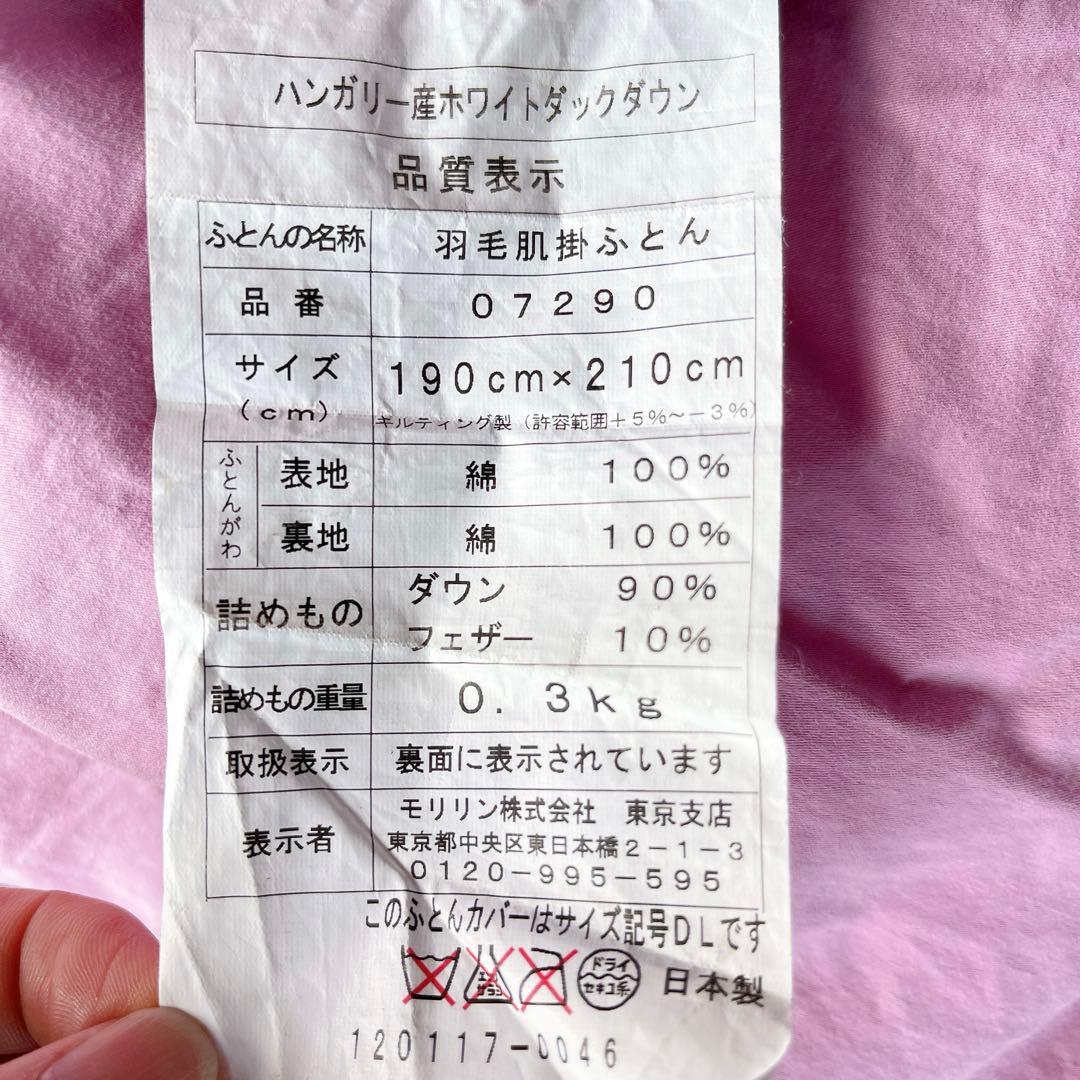 ハンガリー産ホワイトダックダウン
品質表示
ふとんの名称 羽毛肌掛ふとん
品番 07290
サイズ(cm) 190cm×210cm
キルティング製(許容範囲+5%~-3%)
ふとんがわ 表地 綿 100%
裏地 綿 100%
詰めもの ダウン 90%
フェザー 10%
詰めもの重量 0.3kg
取扱表示 裏面に表示されています
表示者 モリリン株式会社 東京支店
東京都中央区東日本橋2-1-3
0120-995-595
このふとんカバーはサイズ記号DLです
エンソサラシ ドライ セキユ系 日本製
120117-0046